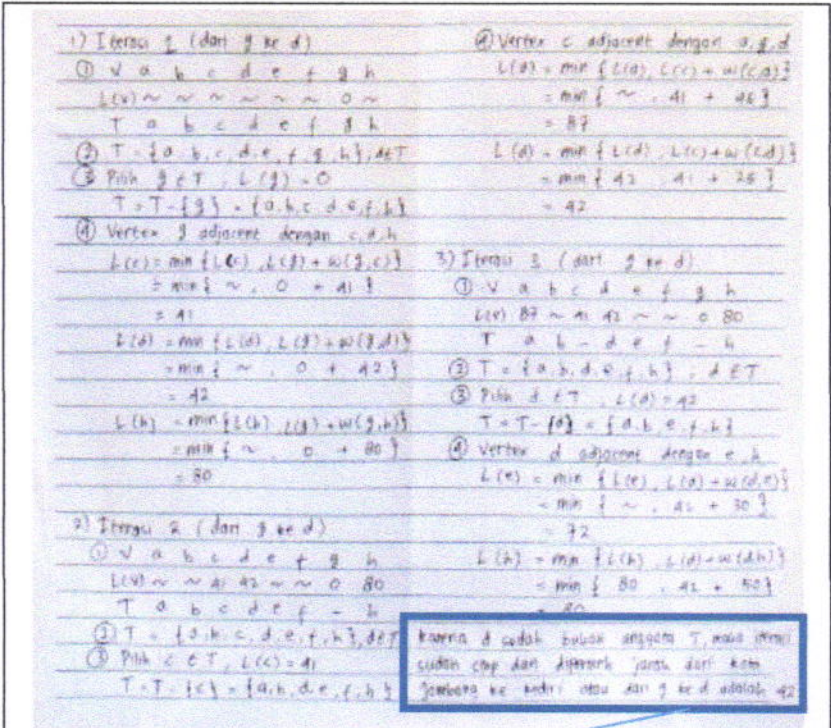 1) Iterasi 1 (dari g ke d)
① V a b c d e f g h
L(v) ~ ~ ~ ~ ~ ~ 0 ~
T a b c d e f g h
② T = {a, b, c, d, e, f, g, h}, d∈T
③ Pilih g ∈ T, L(g) = 0
T = T - {g} = {a, b, c, d, e, f, h}
④ Vertex g adjacent dengan c, d, h
L(c) = min {L(c), L(g) + w(g,c)}
= min { ~, 0 + 41 }
= 41
L(d) = min {L(d), L(g) + w(g,d)}
= min { ~, 0 + 42 }
= 42
L(h) = min {L(h), L(g) + w(g,h)}
= min { ~, 0 + 80 }
= 80
2) Iterasi 2 (dari g ke d)
① V a b c d e f g h
L(v) ~ ~ 41 42 ~ ~ 0 80
T a b c d e f - h
② T = {a, b, c, d, e, f, h}, d∈T
③ Pilih c ∈ T, L(c) = 41
T = T - {c} = {a, b, d, e, f, h}
④ Vertex c adjacent dengan a, g, d
L(a) = min {L(a), L(c) + w(c,a)}
= min { ~, 41 + 46 }
= 87
L(d) = min {L(d), L(c) + w(c,d)}
= min { 42, 41 + 25 }
= 42
3) Iterasi 3 (dari g ke d)
① V a b c d e f g h
L(v) 87 ~ 41 42 ~ ~ 0 80
T a b - d e f - h
② T = {a, b, d, e, f, h}, d ∈ T
③ Pilih d ∈ T, L(d) = 42
T = T - {d} = {a, b, e, f, h}
④ Vertex d adjacent dengan e, h
L(e) = min {L(e), L(d) + w(d,e)}
= min { ~, 42 + 30 }
= 72
L(h) = min {L(h), L(d) + w(d,h)}
= min { 80, 42 + 50 }
= 80
karena d sudah bukan anggota T, maka iterasi
sudah stop dan diperoleh jarak dari kota
Jombang ke kediri atau dari g ke d adalah 42